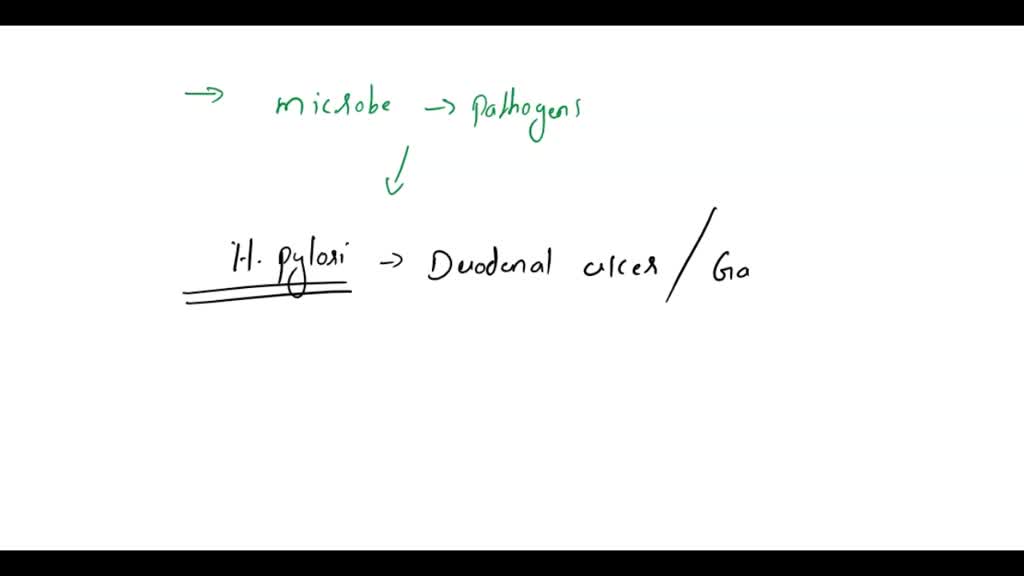 → microbe → pathogens
↓
H. pylori → Duodenal ulcer / Ga